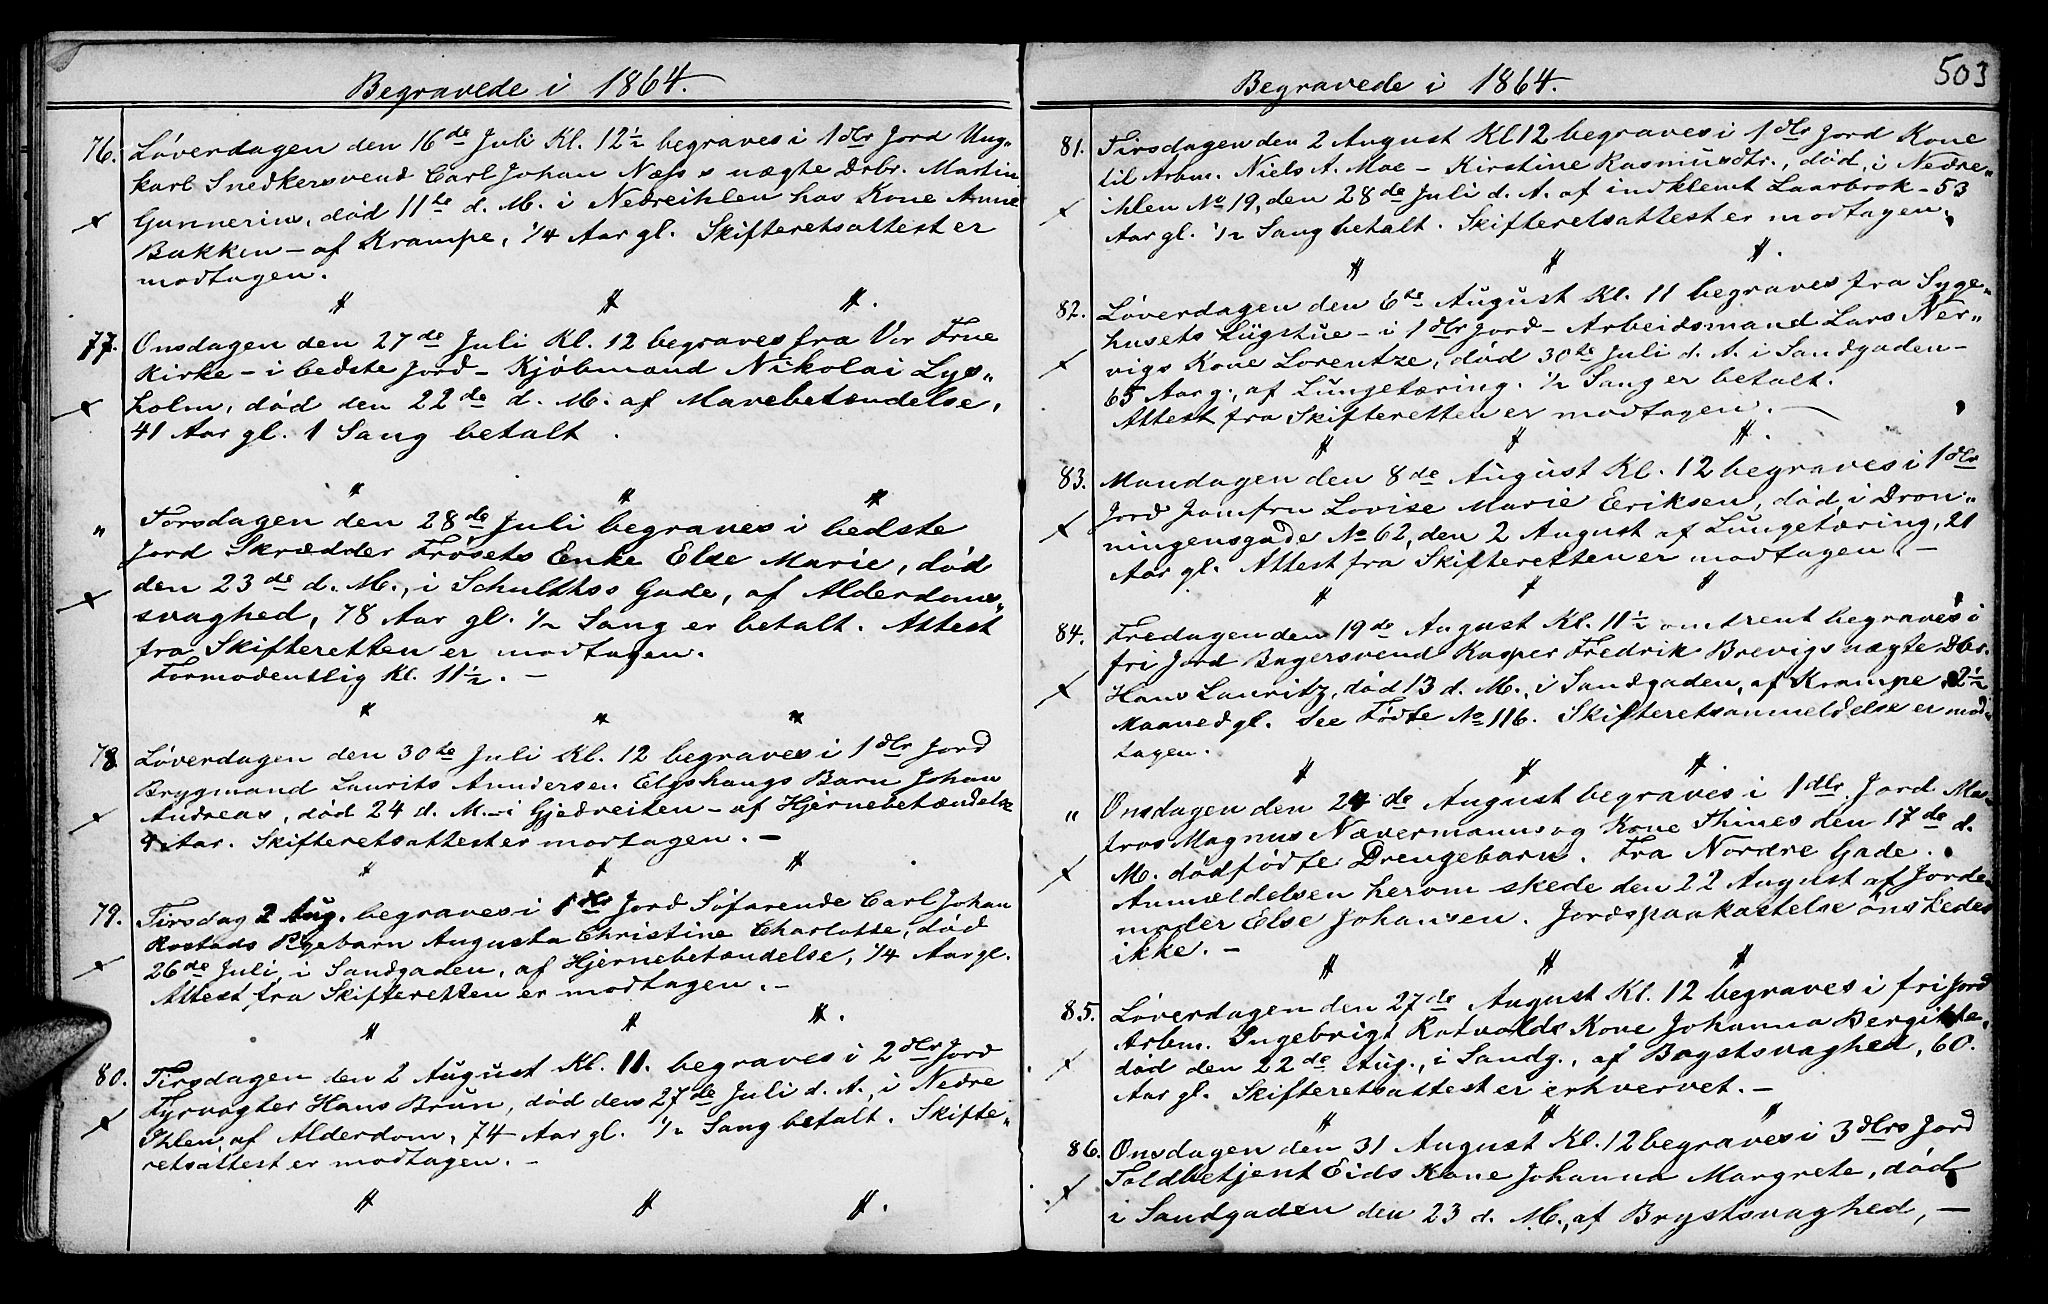 Begravede i 1864.
76. Løverdagen den 16de Juli Kl. 12½ begraves i 1 dlr Jord Ung-
karl Snedkersvend Carl Johan Næss s uægte Drbr. Martin
Gunnerius, død 11te d. M. i Nedreihlen hos Kone Anne
Bakken - af Krampe, ¼ Aar gl. Skifteretsattest er
modtagen.
77. Onsdagen den 27de Juli Kl. 12 begraves fra Vor Frue
Kirke - i bedste Jord - Kjöbmand Nikolai Lys-
holm, død den 22de d. M. af Mavebetændelse,
41 Aar gl. 1 Sang betalt.
" Torsdagen den 28de Juli begraves i bedste
Jord Skrædder Frösets Enke Else Marie, død
den 23de d. M., i Schulthss Gade, af Alderdoms-
svaghed, 78 Aar gl. ½ Sang er betalt. Attest
fra Skifteretten er modtagen.
Formodentlig Kl. 11½. -
78 Løverdagen den 30te Juli Kl. 12 begraves i 1 dlr Jord
Brygmand Laurits Andersen Elgshaugs Barn Johan
Andreas, død 24 d. M. - i Gjedreiten - af Hjernebetændelse
4 Aar. Skifteretsattest er modtagen. -
79. Tirsdag 2 Aug. begraves i 1 dlr Jord Söfarende Carl Johan
Rostads Pigebarn Augusta Christine Charlotte, død
26de Juli, i Sandgaden, af Hjernebetændelse, ¼ Aar gl.
Attest fra Skifteretten er modtagen. -
80. Tirsdagen den 2 August Kl. 11. begraves i 2 dlrs Jord
Fyrvagter Hans Brun, død den 27de Juli d. A., i Nedre
Ihlen af Alderdom, 74 Aar gl. ½ Sang betalt. Skifte-
retsattest er modtagen. -
503
Begravede i 1864.
81. Tirsdagen den 2 August Kl 12 begraves i 1 dlrs Jord Kone
til Arbm. Niels A. Moe - Kirstine Rasmusdtr., død, i Nedre-
ihlen No 19, den 28de Juli d. A. af indklemt Laarbrok - 53
Aar gl. ½ Sang betalt. Skifteretsattest er modtagen.
82. Løverdagen den 6te August Kl. 11 begraves fra Syge-
husets Liigstue - i 1 dlr Jord - Arbeidsmand Lars Ner-
vigs Kone Lorentze, død 30te Juli d. A. i Sandgaden -
65 Aar g., af Lungetæring. ½ Sang er betalt.
Attest fra Skifteretten er modtagen.
83. Mandagen den 8de August Kl. 12 begraves i 1 dlrs
Jord Jomfru Lovise Marie Eeriksen, død, i Dron-
ningensgade No 62, den 2 August af Lungetæring, 21
Aar gl. Attest fra Skifteretten er modtagen. -
84. Fredagen den 19de August Kl. 11½ omtrent begraves i
fri Jord Bagersvend Kasper Fredrik Brevigs uægte Dbr.
Hans Lauritz, død 13 d. M., i Sandgaden, af Krampe, 2½
Maaned gl. See Födte No 116. Skifteretsanmeldelse er mod-
tagen.
" Onsdagen den 24de August begraves i 1 dlr. Jord Ma-
tros Magnus Nævermanns og Kone Thines den 17de d.
M. dødfödte Drengebarn. Fra Nordre Gade.
Anmeldelsen herom skede den 22 August af Jorde-
moder Else Johansen. Jordspaakastelse önskedes
ikke. -
85. Løverdagen den 27de August Kl. 12 begraves i fri Jord
Arbm. Ingebrigt Rotvolds Kone Johanna Bergitte,
død den 22de Aug., i Sandg., af Brystsvaghed, 60.
Aar gl. Skifteretsattest er erhvervet. -
86. Onsdagen den 31 August Kl. 12 begraves i 3 dlrs Jord
Toldbetjent Eids Kone Johanna Margrete, død
i Sandgaden den 23 d. M., af Brystsvaghed, -